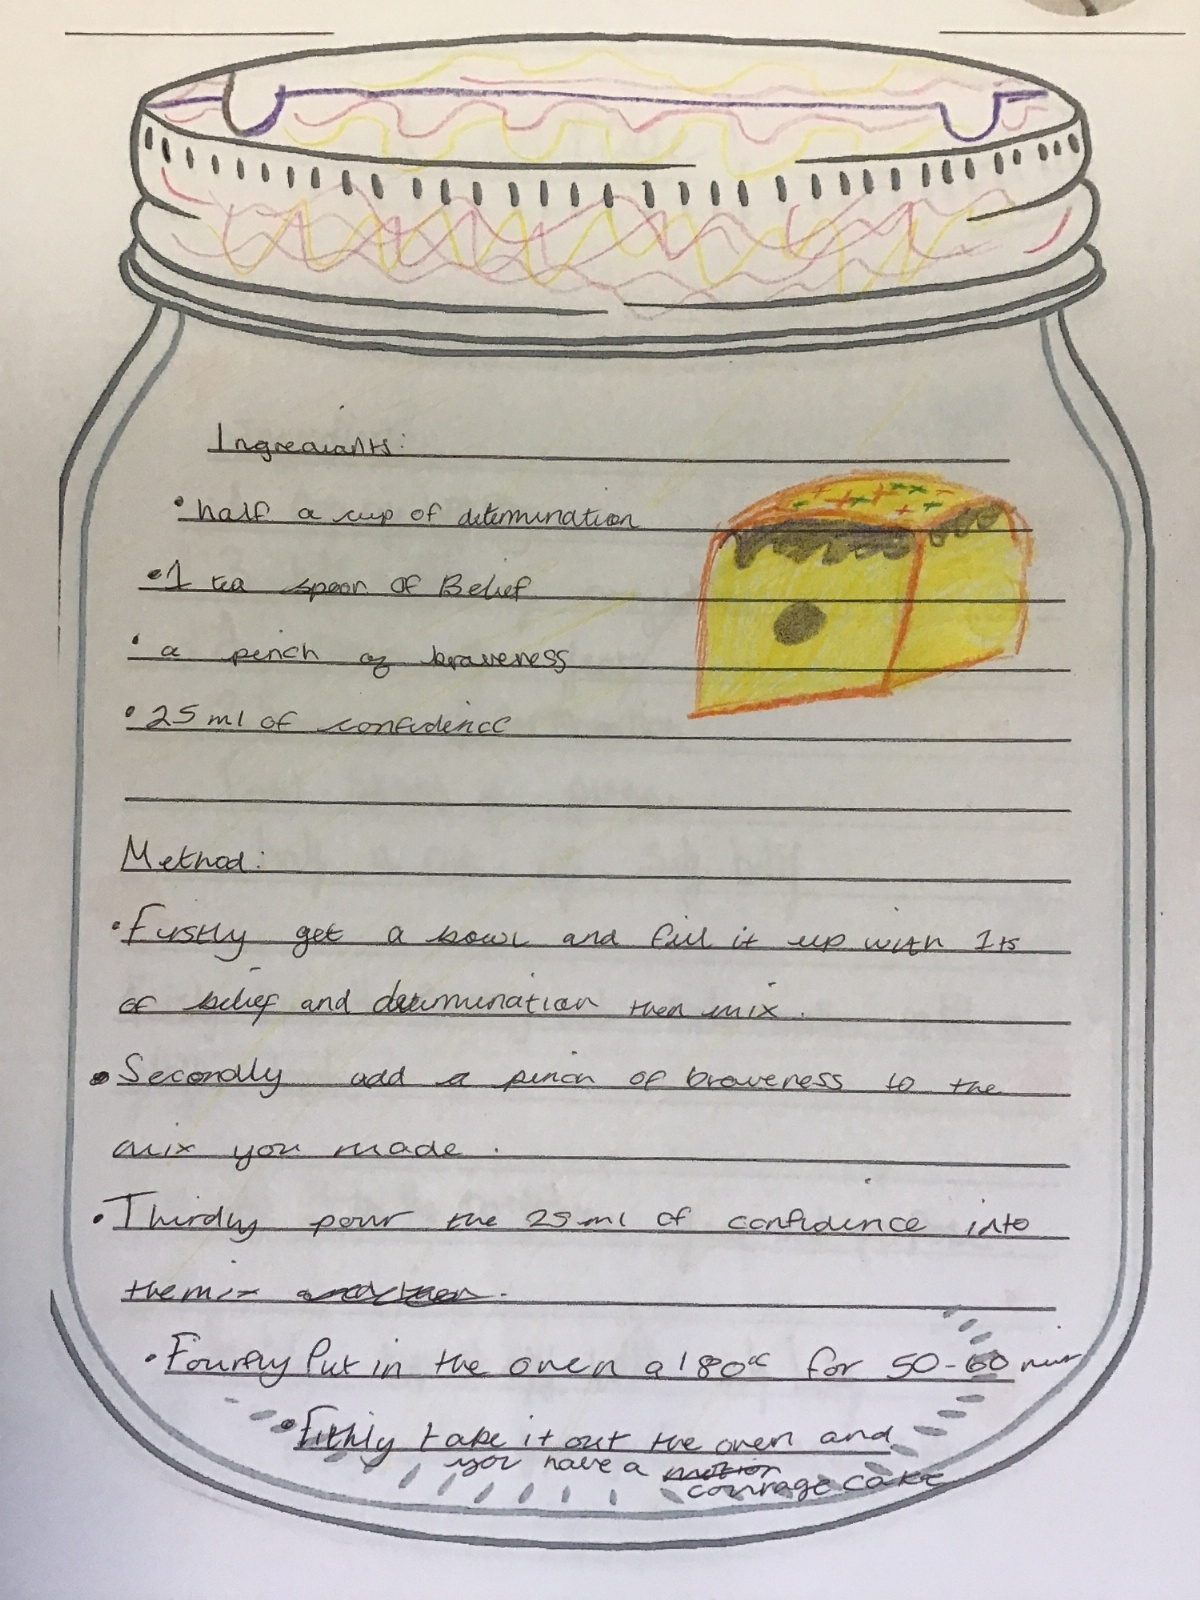 Ingrediants:
• half a cup of determination
• 1 tea spoon of Belief
• a pinch of braveness
• 25 ml of confidence
Method:
• Firstly get a bowl and fill it up with 1ts
of belief and determination then mix.
• Secondly add a pinch of braveness to the
mix you made.
• Thirdly pour the 25 ml of confidence into
the mix and then.
• Fourfly Put in the oven a 180°c for 50-60 min
• Fithly take it out the oven and
you have a
courage cake